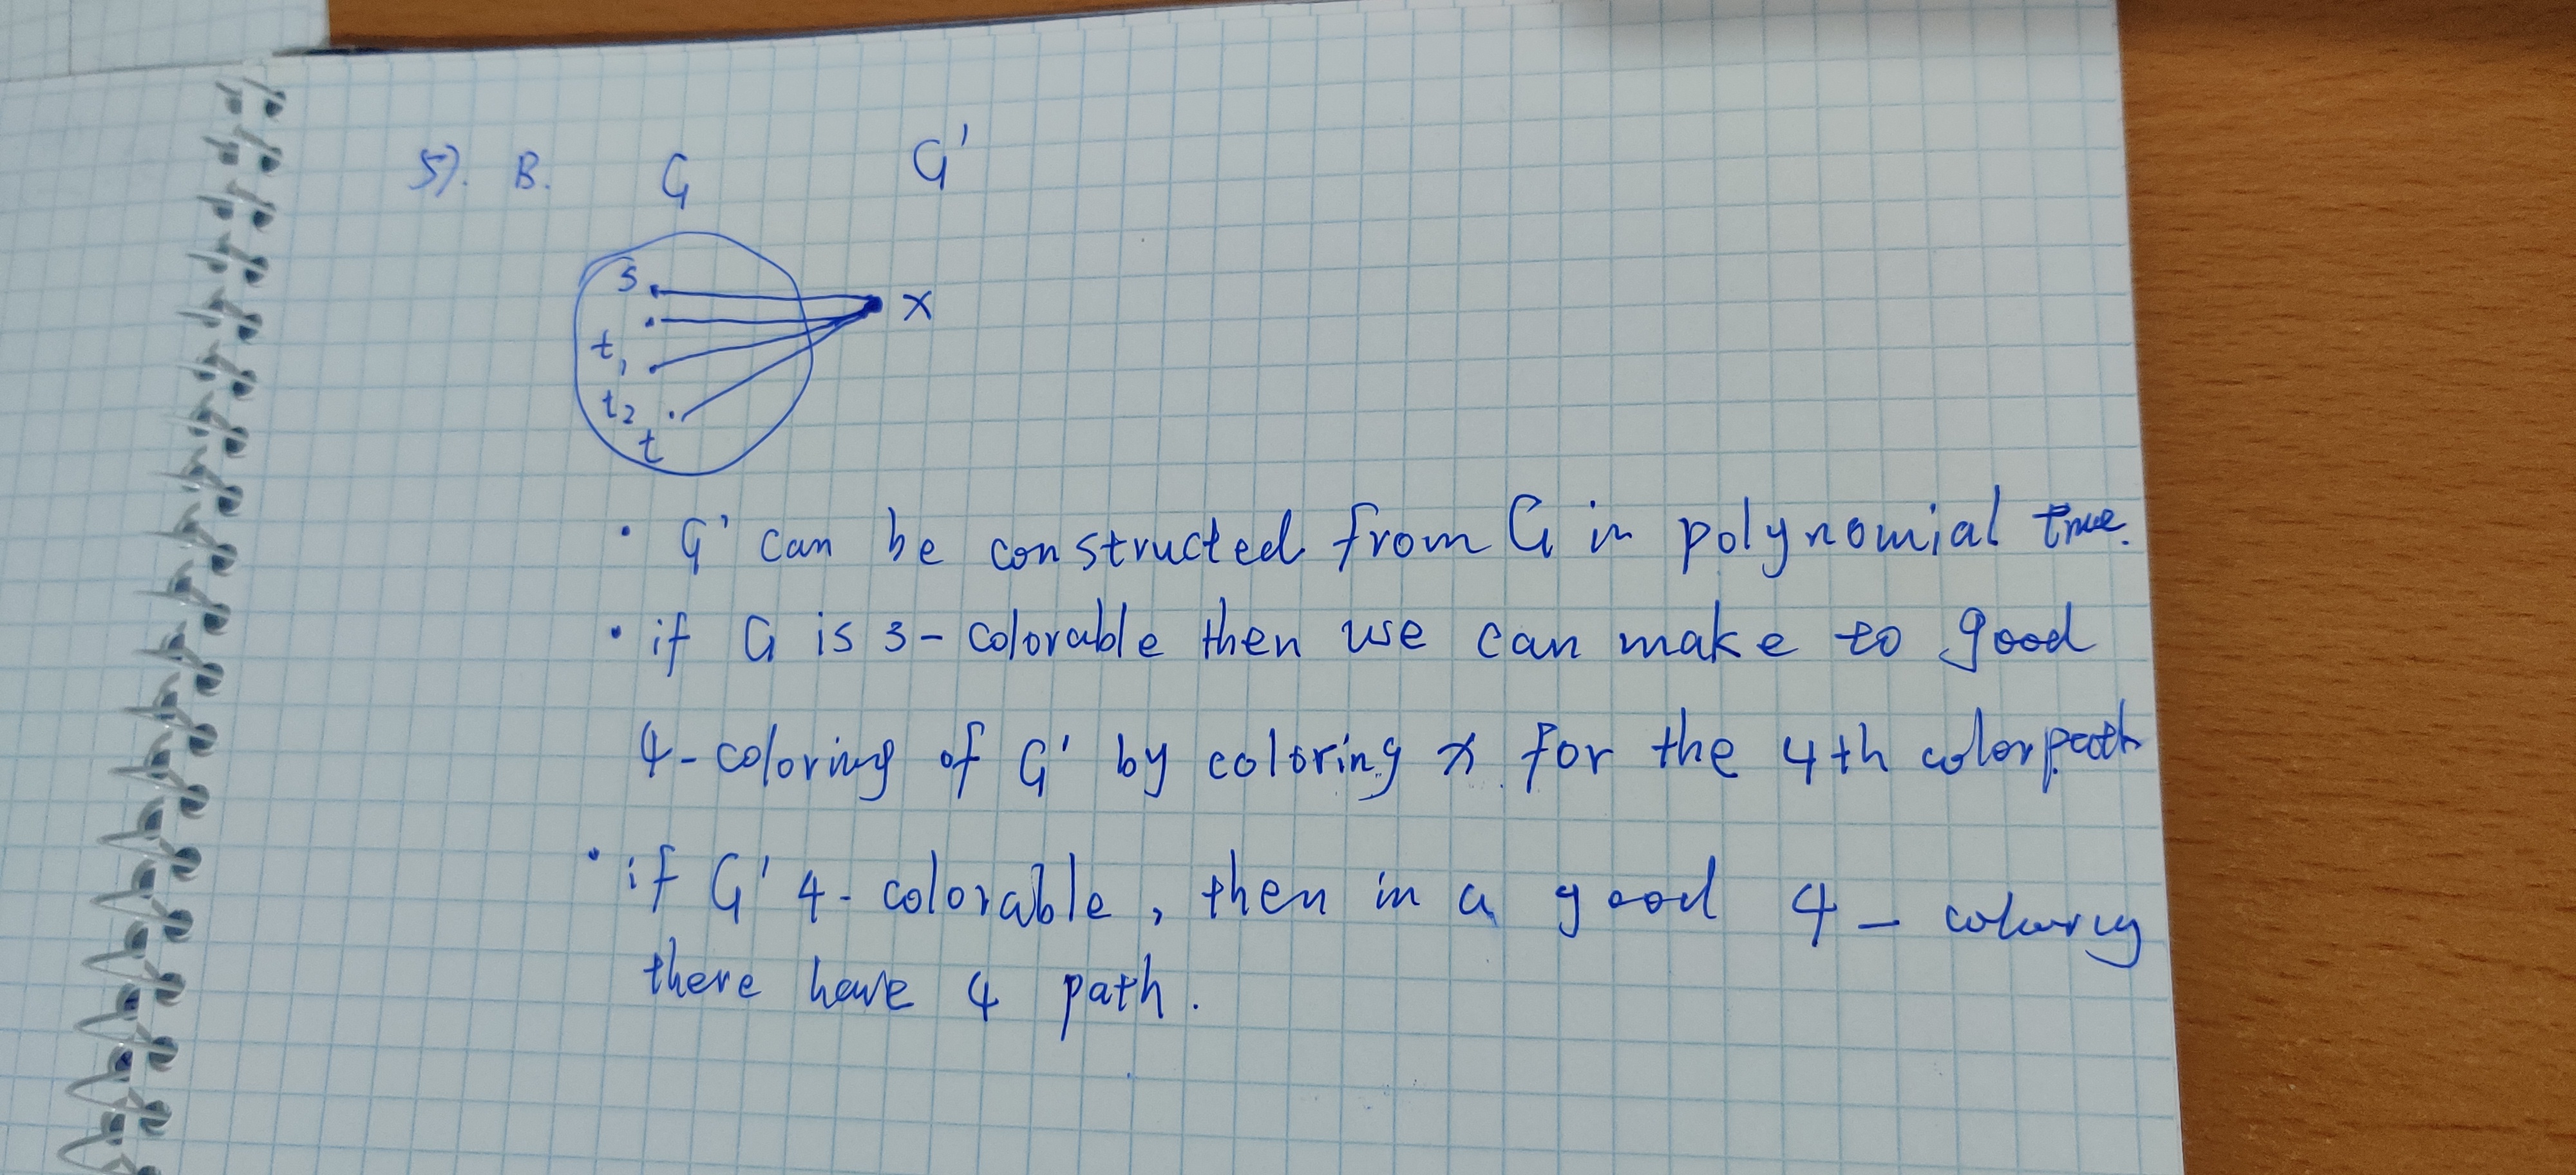 5). B.
G G'
s
t₁
t₂
t
x
• G' can be constructed from G in polynomial time.
• if G is 3-colorable then we can make to good
4-coloring of G' by coloring x for the 4th color path
• if G' 4-colorable, then in a good 4-coloring
there have 4 path.